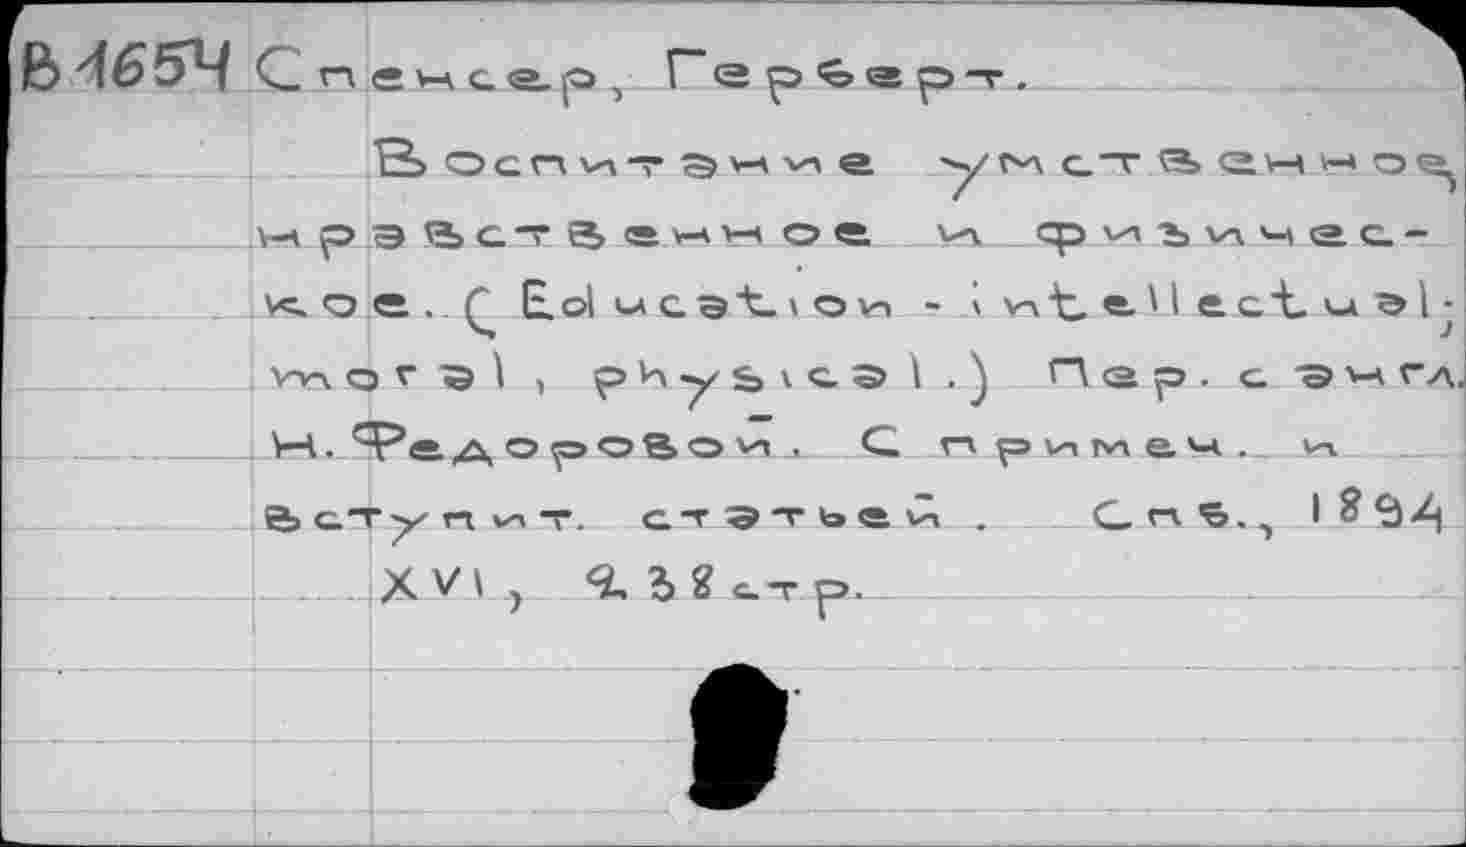 В1654 Спенсер, Герберт.
Воспитание умственное,
нравственное и физичес-
кое. (Education - intellectual;
moral, physical.) Пер. с англ.
Н. Федоровой. С примеч. и
вступит. статьей. Спб., 1894
XVI, 238 стр.